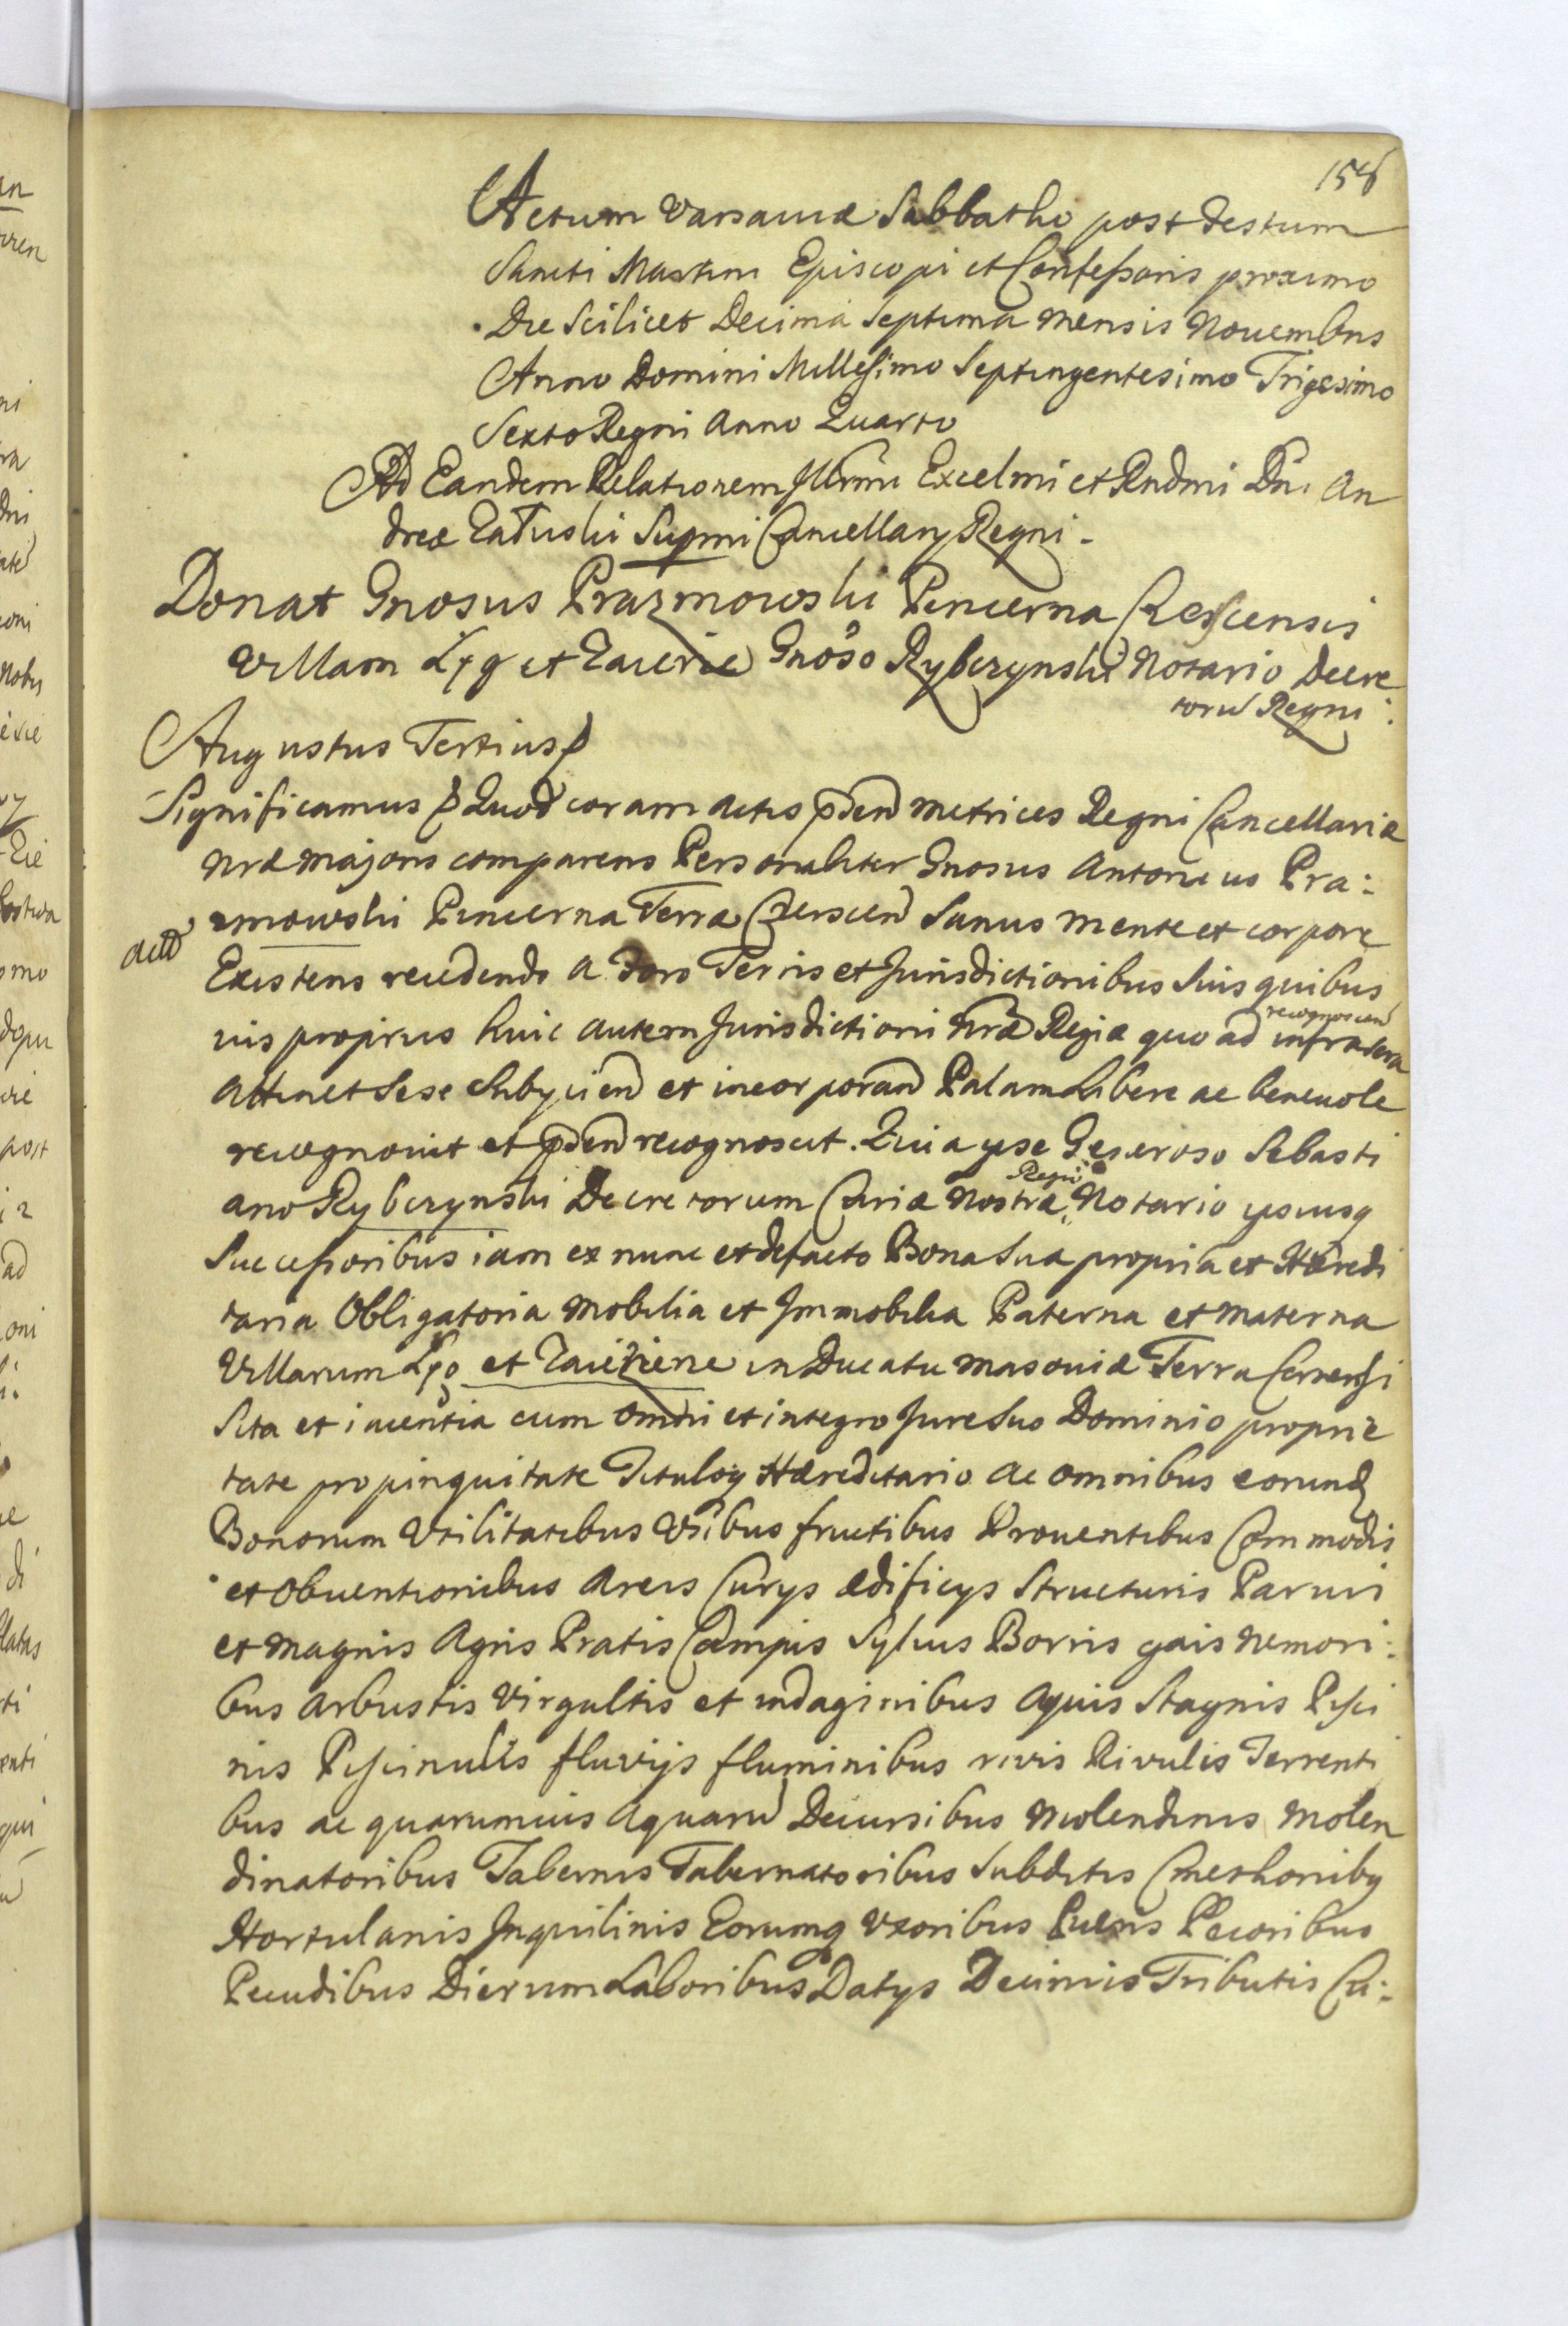 158
Actum Varsauiæ Sabbatho post Festum
Sancti Martini Episcopi et Confessoris proximo
Die Scilicet Decima Septima Mensis Nouembris
Anno Domini Millesimo Septingentesimo Trigesimo
Sexto Regni Anno Quarto
Ad Eandem Relationem Illrmi Excelmi et Rndmi Dni An
dreæ Załuski Supmi Cancellarij Regni.
Donat Gnosus Prazmowski Pincerna Cerscensis
Villam et Gnoso Rybczynski Notario Decre
toru Regni
Augustus Tertius
Significamus Quod coram Actis pden Metrices Regni Cancellariæ
Nræ Majoris comparens Personaliter Gnosus Antonius Pra:
zmowski Pincerna Terræ Czerscen Sanus mente et corpore
Existens recedendo a Foro Terris et Jurisdictionibus Suis quibus
uis propriis huic autem Jurisdictioni Nræ Regiæ quo ad recognoscen infrascra
Attinet Sese Subijcien et incorporan Palam Libere ac beneuole
recognouit et pden recognoscit. Quia ipse Generoso Sebasti
ano Rybczynski Decretorum Cariæ Nostræ Regni Notario ipsiusq
Successoribus iam ex nunc et defacto Bona Sua propria et Hæredi
taria Obligatoria Mobilia et Immobilia Paterna et Materna
Villarum et in Ducatu Masouiæ Terra Cersensi
Sita et iacentia cum omni et integro Jure Suo Dominio proprie
tate propinquitate Tituloq Hæreditario ac omnibus eorund
Bonorum Vtilitatibus Vsibus fructibus Prouentibus Commodis
et Obuentionibus Areis Curijs ædificijs Structuris Paruis
et Magnis Agris Pratis Campis Syluis Borris gais Nemori:
bus Arbustis Virgultis et indaginibus Aquis Stagnis Pisci
nis Piscinulis fluvijs fluminibus rivis Rivulis Torrenti
bus ac quarumuis Aquaru Decursibus Molendinis Molen
dinatoribus Tabernis Tabernatoribus Subditis Cmethonibq
Hortulanis Inquilinis Eorumq Vxoribus Pueris Pecoribus
Pecudibus Dierum Laboribus Datijs Decimis Tributis Cu: